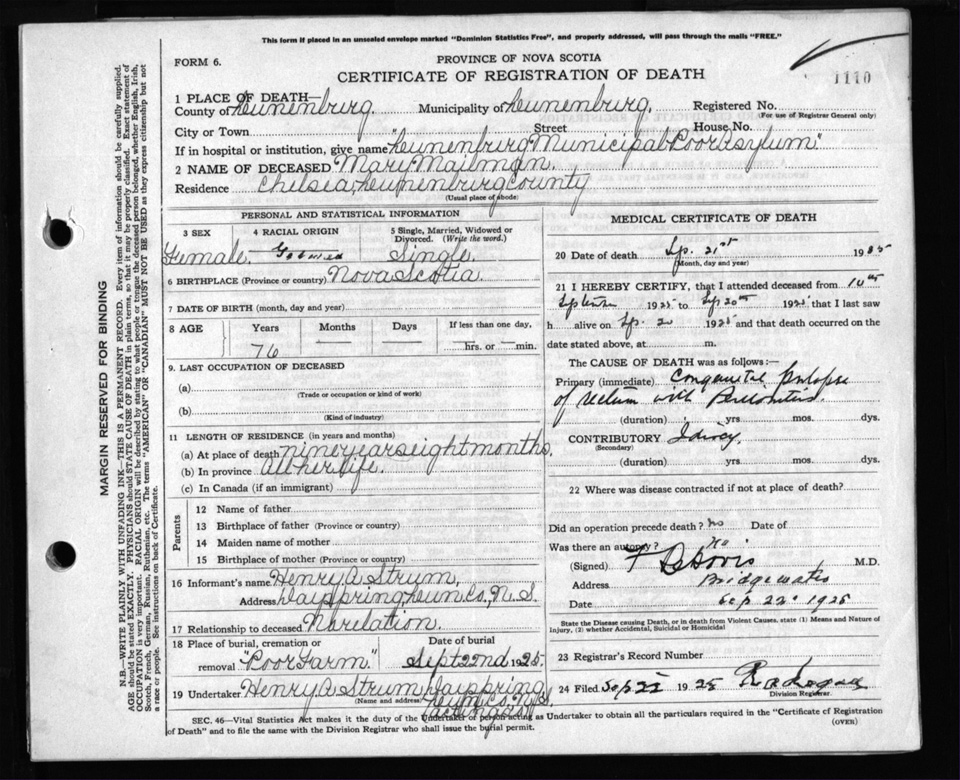 This form if placed in an unsealed envelope marked "Dominion Statistics Free", and properly addressed, will pass through the mails "FREE."
FORM 6.
PROVINCE OF NOVA SCOTIA
CERTIFICATE OF REGISTRATION OF DEATH
1110
1 PLACE OF DEATH—
County of Lunenburg. Municipality of Lunenburg, Registered No.
(For use of Registrar General only)
City or Town Street House No.
If in hospital or institution, give name "Lunenburg Municipal Poor Asylum."
2 NAME OF DECEASED Mary Mailman.
Residence Chelsia, Lunenburg County
(Usual place of abode)
PERSONAL AND STATISTICAL INFORMATION
3 SEX
Female.
4 RACIAL ORIGIN
5 Single, Married, Widowed or Divorced. (Write the word.)
Single.
6 BIRTHPLACE (Province or country) Nova Scotia.
7 DATE OF BIRTH (month, day and year)
8 AGE Years Months Days If less than one day,
76 hrs. or min.
9. LAST OCCUPATION OF DECEASED
(a)
(Trade or occupation or kind of work)
(b)
(Kind of industry)
11 LENGTH OF RESIDENCE (in years and months)
(a) At place of death nine years eight months.
(b) In province All her life.
(c) In Canada (if an immigrant)
Parents
12 Name of father
13 Birthplace of father (Province or country)
14 Maiden name of mother
15 Birthplace of mother (Province or country)
16 Informant's name Henry A. Strum,
Address Dayspring Lun. Co., N. S.
17 Relationship to deceased No relation.
18 Place of burial, cremation or removal "Poor Farm."
Date of burial
Sept 22nd 1925.
19 Undertaker Henry A. Strum, Dayspring
(Name and address) Lun. Co., N.S.
acting as
MEDICAL CERTIFICATE OF DEATH
20 Date of death Sp. 21st 1925
(Month, day and year)
21 I HEREBY CERTIFY, that I attended deceased from 10th
September 1925 to Sp 20th 1925 that I last saw
h alive on Sp. 20 1925 and that death occurred on the
date stated above, at m.
The CAUSE OF DEATH was as follows:—
Primary (immediate) Congenital prolapse
of rectum with Peritonitis.
(duration) yrs mos. dys.
CONTRIBUTORY Idiocy.
(Secondary)
(duration) yrs. mos. dys.
22 Where was disease contracted if not at place of death?
Did an operation precede death? no Date of
Was there an autopsy? No
(Signed) M.D.
Address Bridgewater
Date Sep 22 1925
State the Disease causing Death, or in death from Violent Causes, state (1) Means and Nature of
Injury, (2) whether Accidental, Suicidal or Homicidal
23 Registrar's Record Number
24 Filed Sep 22 1925
Division Registrar.
SEC. 46—Vital Statistics Act makes it the duty of the Undertaker or person acting as Undertaker to obtain all the particulars required in the "Certificate of Registration
of Death" and to file the same with the Division Registrar who shall issue the burial permit.
(OVER)
MARGIN RESERVED FOR BINDING
N.B.—WRITE PLAINLY WITH UNFADING INK—THIS IS A PERMANENT RECORD. Every item of information should be carefully supplied.
AGE should be stated EXACTLY. PHYSICIANS should STATE CAUSE OF DEATH in plain terms, so that it may be properly classified. Exact statement of
OCCUPATION is very important. RACIAL ORIGIN will be described by stating to what people or tongue the deceased person belonged, whether English, Irish,
Scotch, French, German, Russian, Ruthenian, etc. The terms "AMERICAN" OR "CANADIAN" MUST NOT BE USED as they express citizenship but not
a race or people. See instructions on back of Certificate.